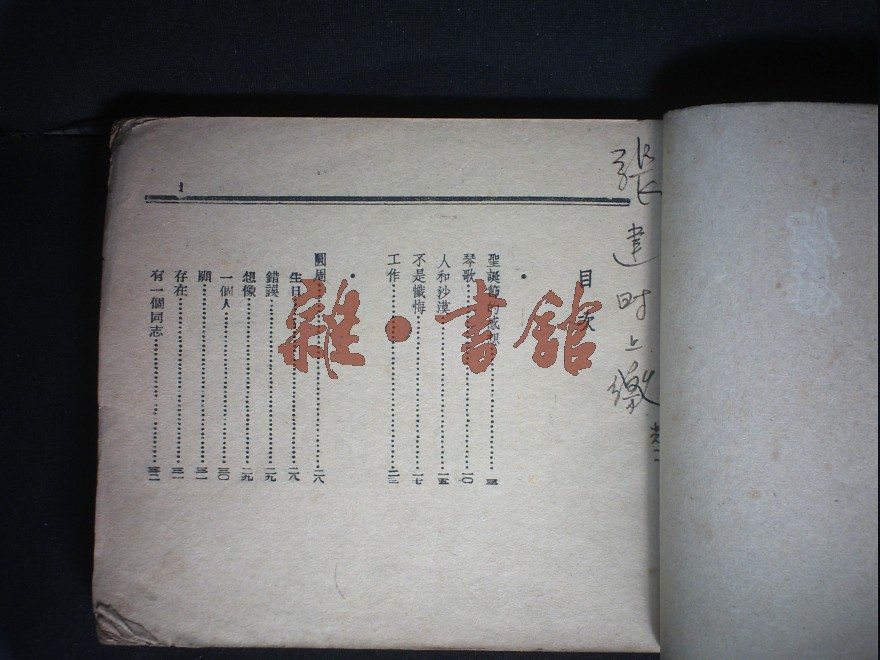 張建时上繳
目次
•
聖誕節的感想……三
琴歌……一〇
人和沙漠……一五
不是懺悔……一七
工作……二三
•
圓周……二八
生日……二八
錯誤……二九
想像……二九
一個人……三〇
願……三一
存在……三一
有一個同志……三二
1
雜•書館